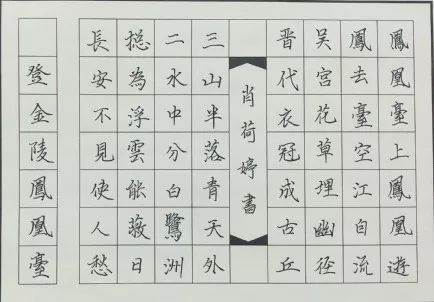 鳳凰臺上鳳凰遊
鳳去臺空江自流
吳宮花草埋幽徑
晋代衣冠成古丘
肖荷婷書
三山半落青天外
二水中分白鷺洲
摠為浮雲能蔽日
長安不見使人愁
登金陵鳳凰臺